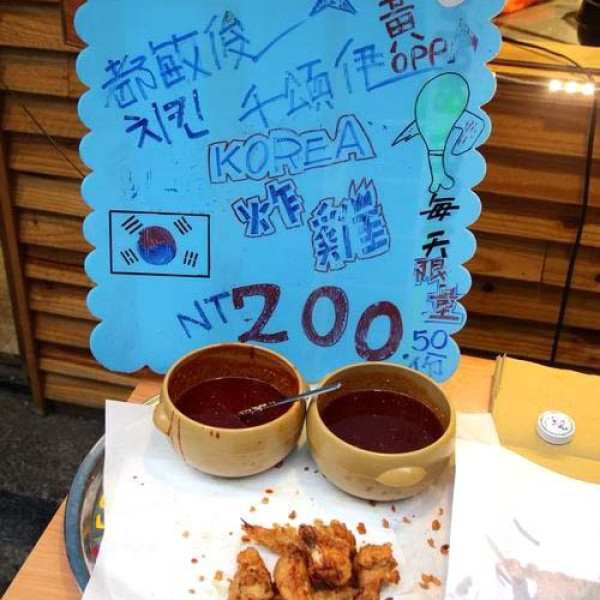 都敏俊
치킨
千頌伊
黃
OPPA
KOREA
炸雞
每天限量
50份
NT 200